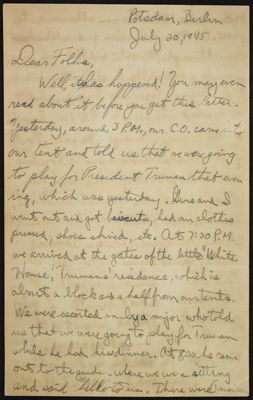 Potsdam, Berlin
July 20, 1945
Dear Folks,
Well, it has happened! You may even
read about it before you get this letter.
Yesterday, around 3 P.M., our C.O. came in to
our tent and told us that we were going
to play for President Truman that even
ing, which was yesterday. Gene and I
went out and got haircuts, had our clothes
pressed, shoes shined, etc. At 7:30 P.M.
we arrived at the gates of the little "White
House," Truman's residence, which is
about a block and a half from our tents.
We were escorted in by a major who told
us that we were going to play for Truman
while he had his dinner. At 8:00 he came
out to the where we were sitting
and said "hello" to us. There were